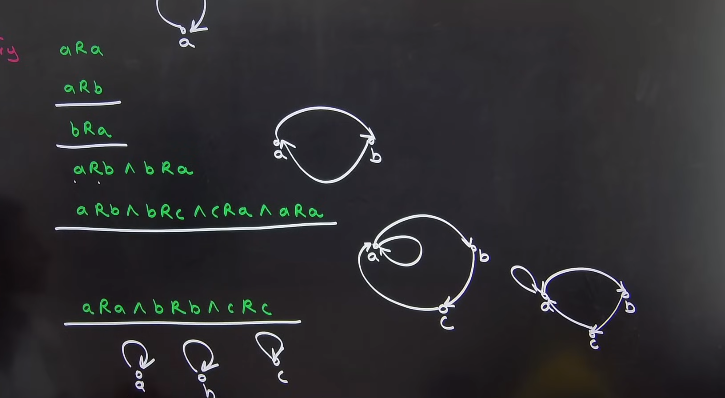 a
aRa
aRb
bRa
a b
aRb ∧ bRa
aRb ∧ bRc ∧ cRa ∧ aRa
a b
c
a b
c
aRa ∧ bRb ∧ cRc
a b c